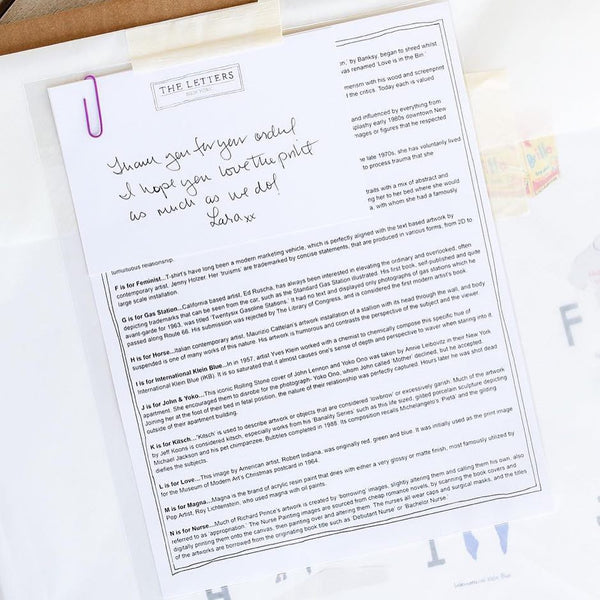 THE LETTERS
NEW YORK
Thank you for your order!
I hope you love the print
as much as we do!
Lara xx
on,' by Banksy, began to shred whilst
was renamed 'Love is in the Bin.'
merism with his wood and screenprint
f the critics. Today each is valued
and influenced by everything from
plashy early 1980s downtown New
mages or figures that he respected
he late 1970s, she has voluntarily lived
to process trauma that she
traits with a mix of abstract and
ng her to her bed where she would
a, with whom she had a famously
tumultuous relationship.
F is for Feminist...T-shirt's have long been a modern marketing vehicle, which is perfectly aligned with the text based artwork by
contemporary artist, Jenny Holzer. Her 'truisms' are trademarked by concise statements, that are produced in various forms, from 2D to
large scale installation.
G is for Gas Station...California based artist, Ed Ruscha, has always been interested in elevating the ordinary and overlooked, often
depicting trademarks that can be seen from the car, such as the Standard Gas Station illustrated. His first book, self-published and quite
avant-garde for 1963, was titled 'Twentysix Gasoline Stations.' It had no text and displayed only photographs of gas stations which he
passed along Route 66. His submission was rejected by The Library of Congress, and is considered the first modern artist's book.
H is for Horse...Italian contemporary artist, Maurizio Cattelan's artwork installation of a station with its head through the wall, and body
suspended is one of many works of this nature. His artwork is humorous and contrasts the perspective of the subject and the viewer.
I is for International Klein Blue...In 1957, artist Yves Klein worked with a chemist to chemically compose this specific hue of
International Klein Blue (IKB). It is so saturated that it almost causes one's sense of depth and perspective to waver when staring into it.
J is for John & Yoko...This iconic Rolling Stone cover of John Lennon and Yoko Ono was taken by Annie Leibovitz in their New York
apartment. She encouraged them to disrobe for the photograph- Yoko Ono, whom John called 'Mother' declined, but he accepted.
Joining her at the foot of their bed in fetal position, the nature of their relationship was perfectly captured. Hours later he was shot dead
outside of their apartment building.
K is for Kitsch...'Kitsch' is used to describe artwork or objects that are considered 'lowbrow' or excessively garish. Much of the artwork
by Jeff Koons is considered kitsch, especially works from his 'Banality Series' such as this life sized, gilded porcelain sculpture depicting
Michael Jackson and his pet chimpanzee, Bubbles completed in 1988. Its composition recalls Michelangelo's 'Pieta' and the gilding
deifies the subjects.
L is for Love...This image by American artist, Robert Indiana, was originally red, green and blue. It was initially used as the print image
for the Museum of Modern Art's Christmas postcard in 1964.
M is for Magna...Magna is the brand of acrylic resin paint that dries with either a very glossy or matte finish, most famously utilized by
Pop Artist, Roy Lichtenstein, who used magna with oil paints.
N is for Nurse...Much of Richard Prince's artwork is created by 'borrowing' images, slightly altering them and calling them his own, also
referred to as 'appropriation.' The Nurse Painting images are sourced from cheap romance novels, by scanning the book covers and
digitally printing them onto the canvas, then painting over and altering them. The nurses all wear caps and surgical masks, and the titles
of the artworks are borrowed from the originating book title such as 'Debutant Nurse' or 'Bachelor Nurse'.
Brillo
F
H
T
International Klein Blue